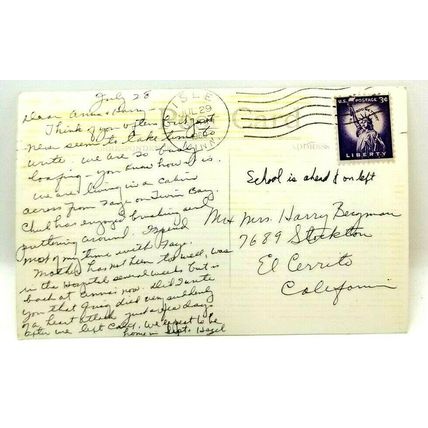 July 28
Dear Anna & Harry
Think of you often but just
never seem to take time to
write. We are so busy
loafing - you know how it is.
We are living in a cabin
across from Faye on Twin Bay.
Chub has enjoyed breaking and
puttering around. I spend
most of my time with Faye.
Mother has not been so well, was
in the hospital several weeks but is
back at Emma's now. Did I write
you that died very suddenly
of a heart attack just a few days
after we left Calif. We expect to be
home in Sept. Hazel
ISLE
JUL 29
MINN.
Post Card
CORRESPONDENCE
ADDRESS
U.S. POSTAGE 3¢
LIBERTY
School is ahead & on left
Mr & Mrs. Harry Bergman
7689 Stockton
El Cerrito
California